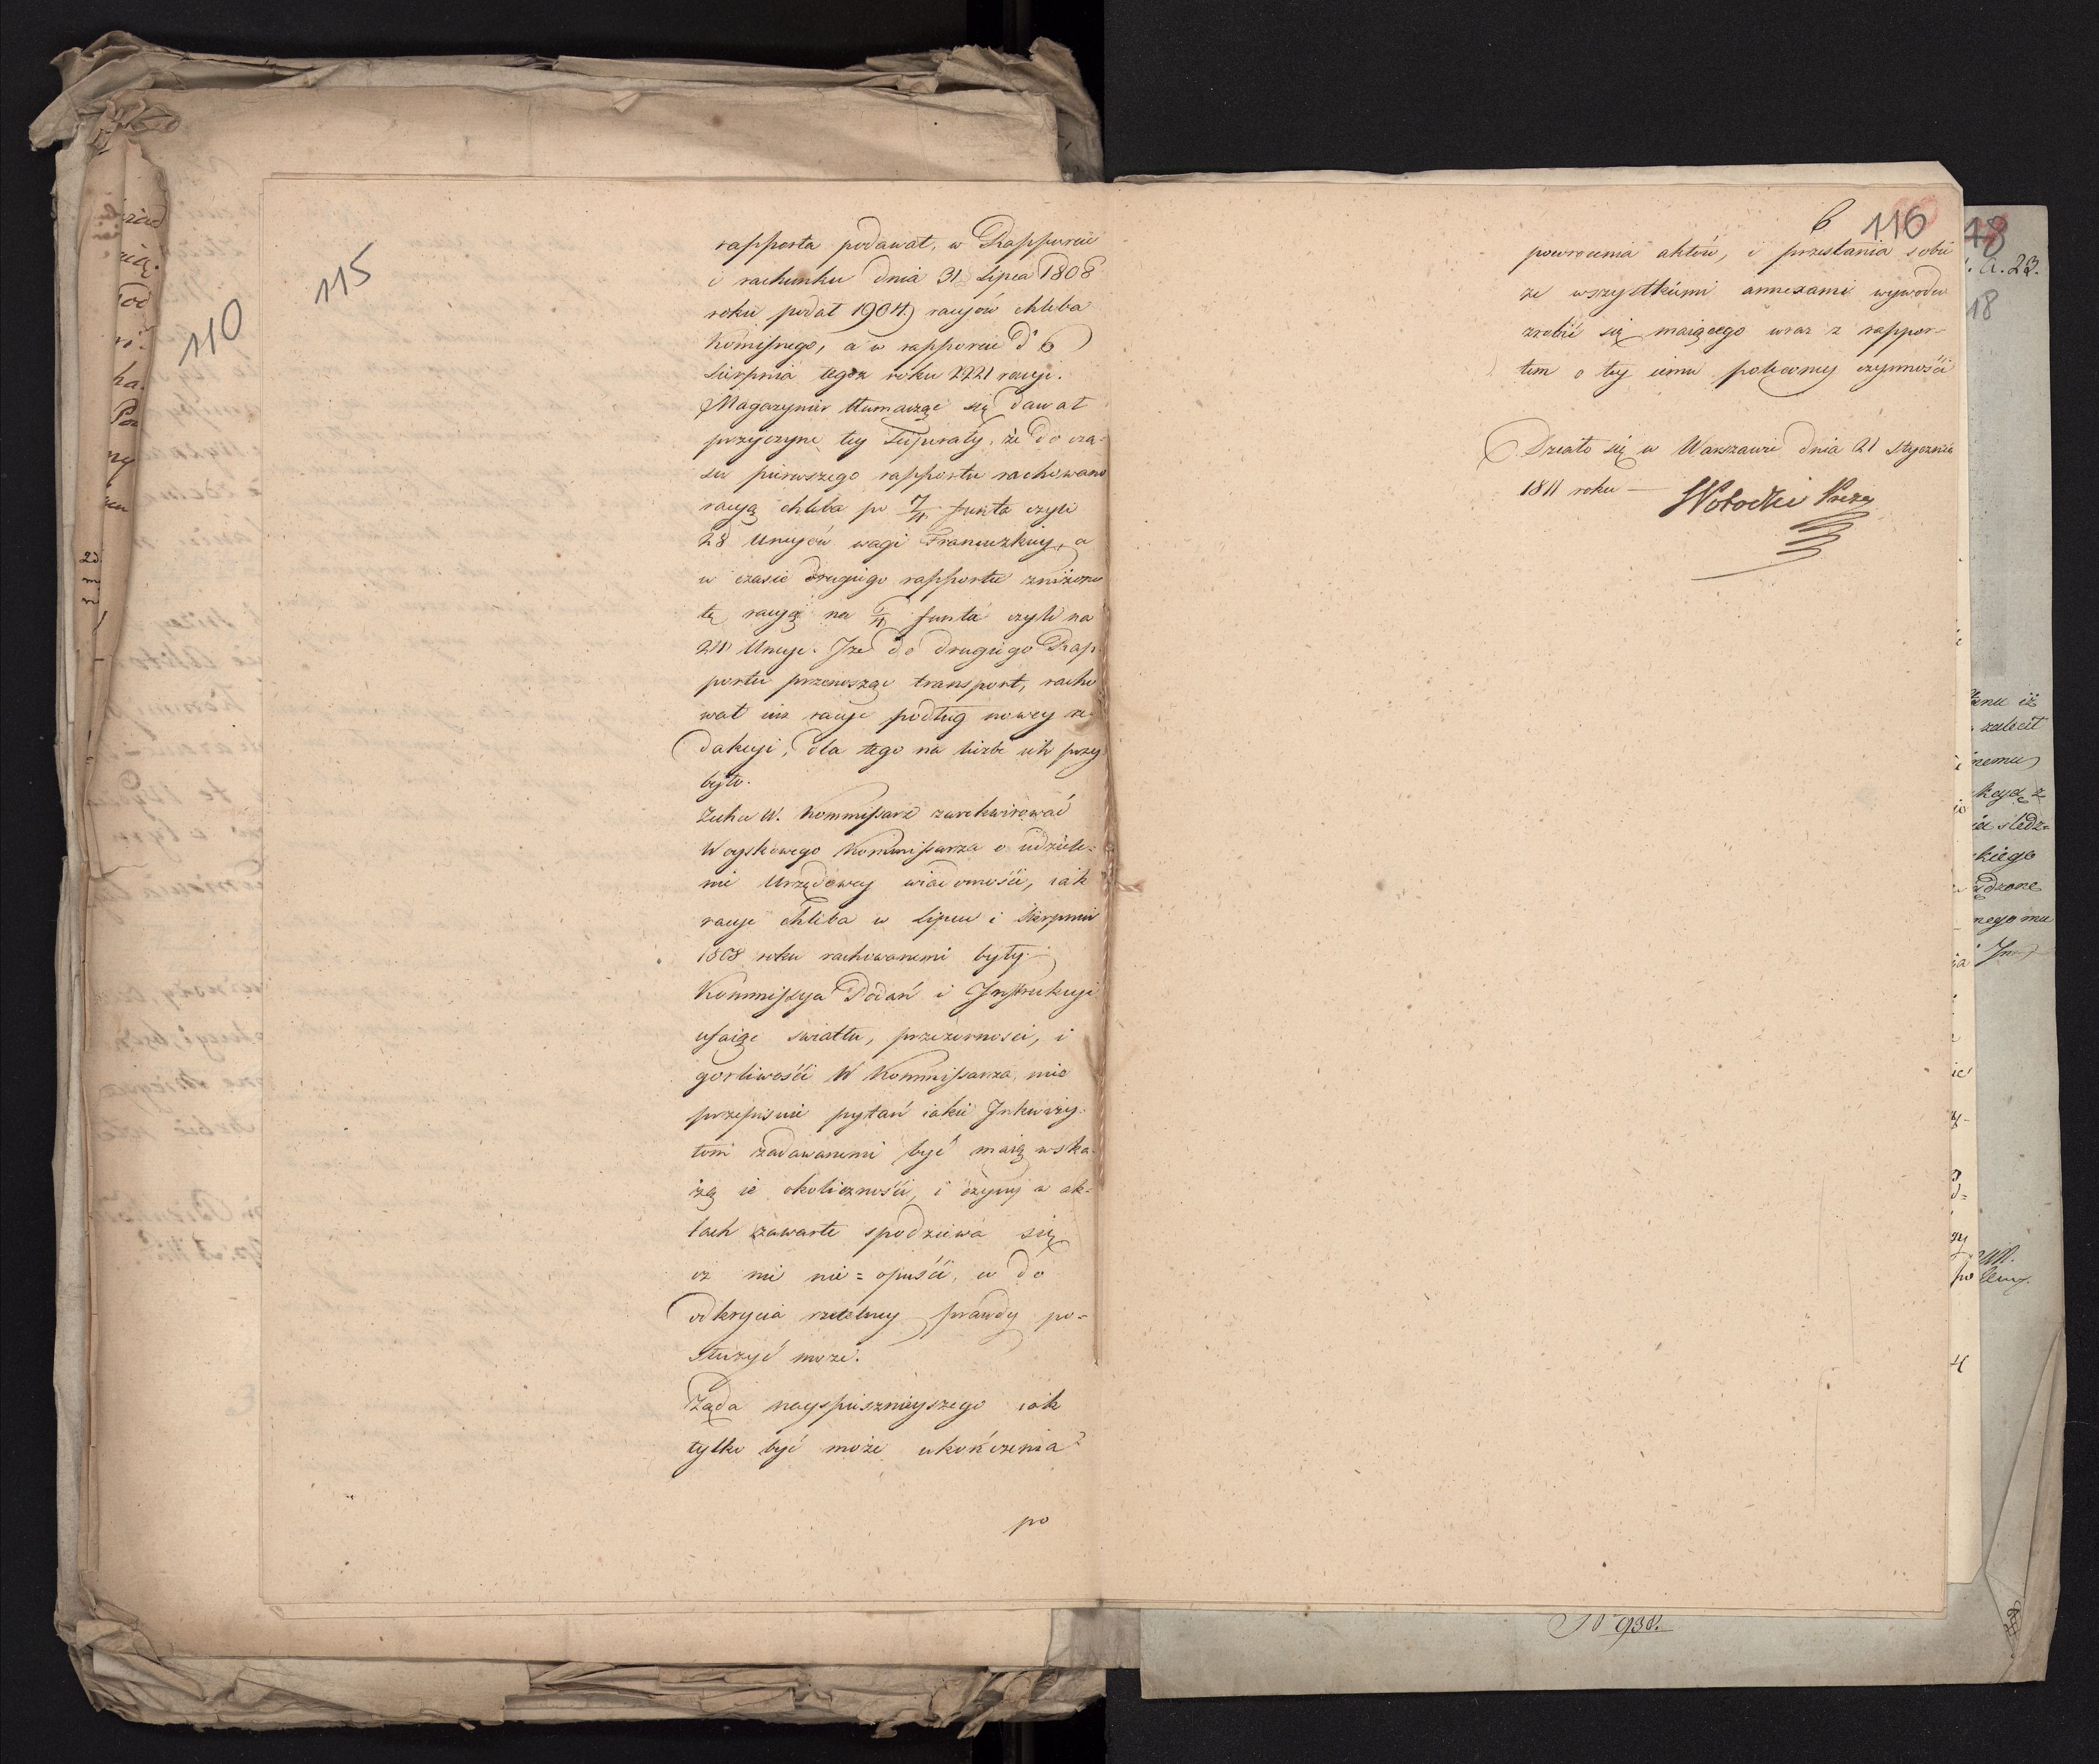 115
110
rapporta podawał, w Rapporcie
i rachunku dnia 31 Lipca 1808
roku podał 1904 racyów chleba
Komiśnego, a w rapporcie d 6
Sierpnia tegoz roku 2221 racyi.
Magazynier tłumacząc się dawał
przyczynę tey , że do cza-
su pierwszego rapportu rachowano
racyą chleba po 7/4 funta czyli
28 Uncyów wagi Francuzkiey, a
w czasie drugiego rapportu zniżono
tę racyą na 6/4 funta czyli na
24 Uncye. Ize do drugiego Rap
portu przenosząc transport, racho
wał iuz racye podług nowey re
dakcyi, dla tego na liczbie ich przy
było.
Zechce W. Kommissarz zarekwirować
Woyskowego Kommissarza o udziele-
nie Urzędowey wiadomości, iak
racye chleba w Lipcu i Sierpniu
1808 roku rachowanemi były.
Kommissya Podań i Instrukcyi
ufaiąc światłu, przezorności, i
gorliwości W Kommissarza, nie
przepisuie pytań iakie Inkwizy-
tom zadawanemi być maią wska-
żą ie okoliczności, i czyny w ak-
tach zawarte spodziewa się
iz nic nie=opuści, co do
odkrycia rzetelney prawdy po-
służyć może.
Żąda nayspiesznieyszego iak
tylko być może ukończenia
po
6 116
powrócenia aktów, i przesłania sobie
ze wszystkiemi annexami wywodu
zrobić się maiącego wraz z rappor-
tem o tey iemu poleconey czynności
Działo się w Warszawie dnia 21 Stycznia
1811 roku — Wołocki Prezes
18
a. 23.
18
zalecił
nemu
kcyą z
śledz=
kiego
dzone
nego mu
N 938.